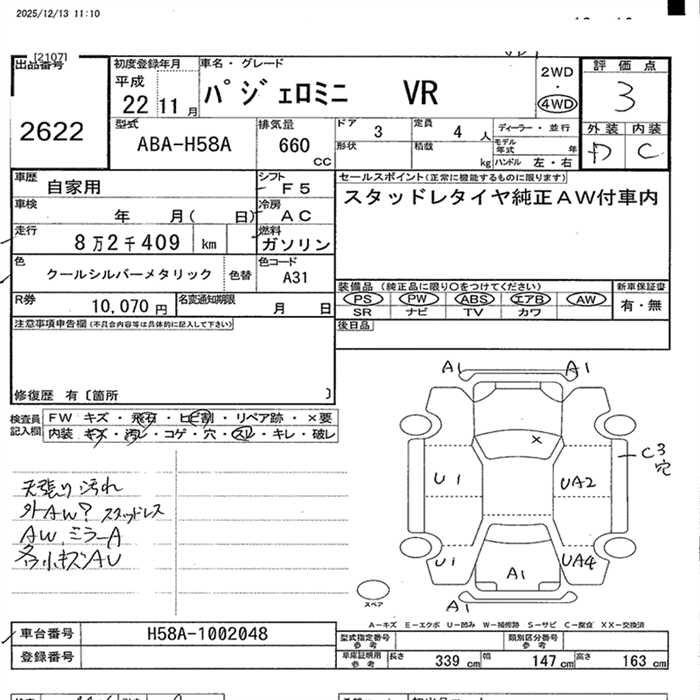 2025/12/13 11:10
[2107]
出品番号
2622
初度登録年月
平成
22 11 月
車名・グレード
パジェロミニ VR
2WD
・
4WD
評価点
3
外装 内装
D C
型式
ABA-H58A
排気量
660
CC
ドア 3
定員 4 人
ディーラー・並行
形状
積載 kg
モデル年式 年
ハンドル 左・右
車歴
自家用
シフト
F5
車検
年 月( 日)
冷房
AC
走行
8万2千409 km
燃料
ガソリン
色
クールシルバーメタリック
色替
色コード
A31
R券
10,070 円
名変通知期限
月 日
セールスポイント(正常に機能するものに限ります)
スタッドレタイヤ純正AW付車内
装備品 (純正品に限り○をつけてください)
PS PW ABS エアB AW
SR ナビ TV カワ
新車保証書
有・無
後日品
注意事項申告欄(不具合内容等は具体的に記入して下さい)
修復歴 有〔箇所 〕
検査員
記入欄
FW キズ・飛石・ヒビ割・リペア跡・×要
内装 キズ・汚レ・コゲ・穴・スレ・キレ・破レ
天張り汚れ
外AW? スタッドレス
AW,ミラーA
各小キズAU
A1 A1
×
C3
穴
U1 UA2
U1 UA4
A1
A1
スペア
A-キズ E-エクボ U-凹み W-補修跡 S-サビ C-腐食 XX-交換済
車台番号
H58A-1002048
登録番号
型式指定番号
参考
類別区分番号
参考
車庫証明用
参考
長さ 339 cm
幅 147 cm
高さ 163 cm